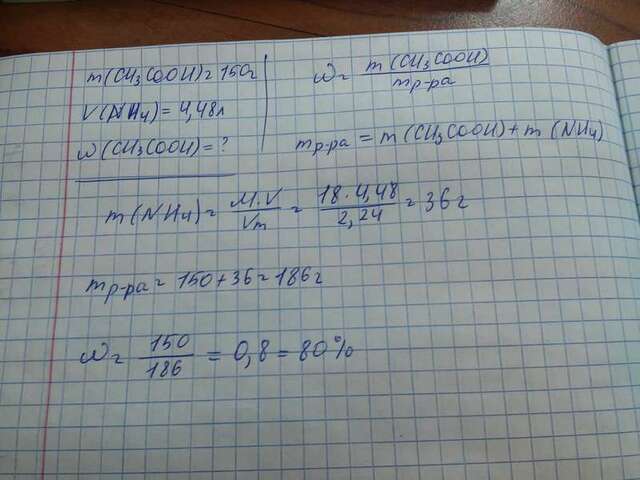 m(CH₃COOH)=150г
V(NH₄)=4,48л
ω(CH₃COOH)=?
ω = m(CH₃COOH) / mр-ра
mр-ра = m(CH₃COOH)+m(NH₄)
m(NH₄)= M·V / Vm = 18·4,48 / 2,24 = 36г
mр-ра = 150+36=186г
ω = 150 / 186 = 0,8 = 80%